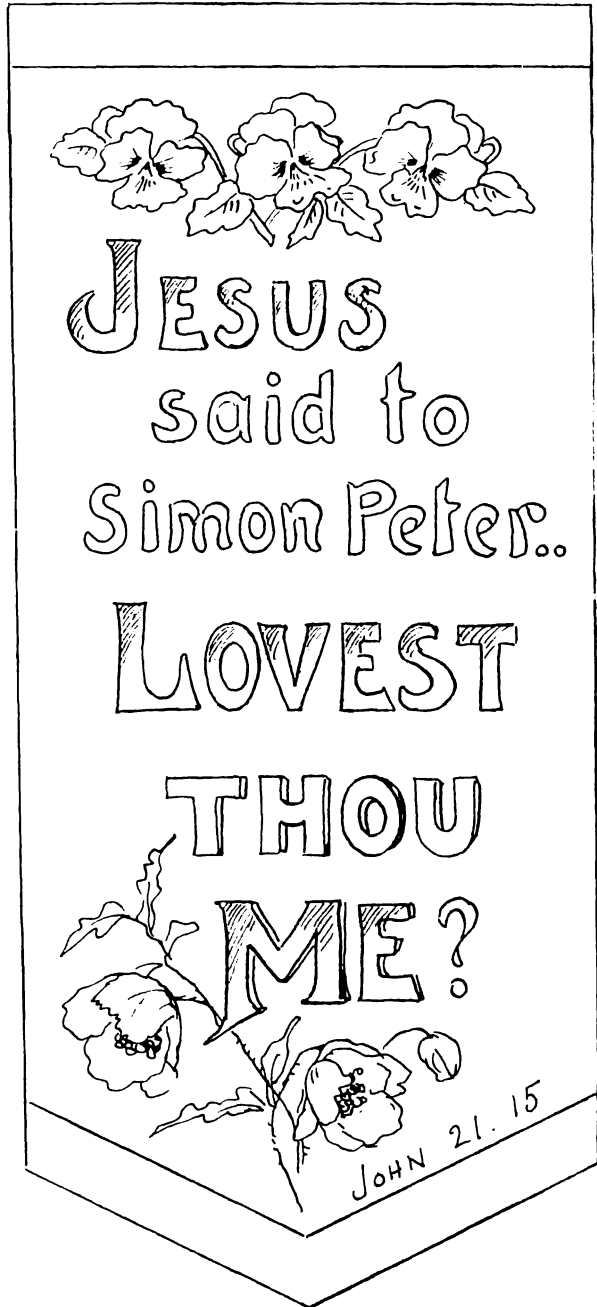 JESUS
said to
Simon Peter..
LOVEST
THOU
ME?
JOHN 21. 15